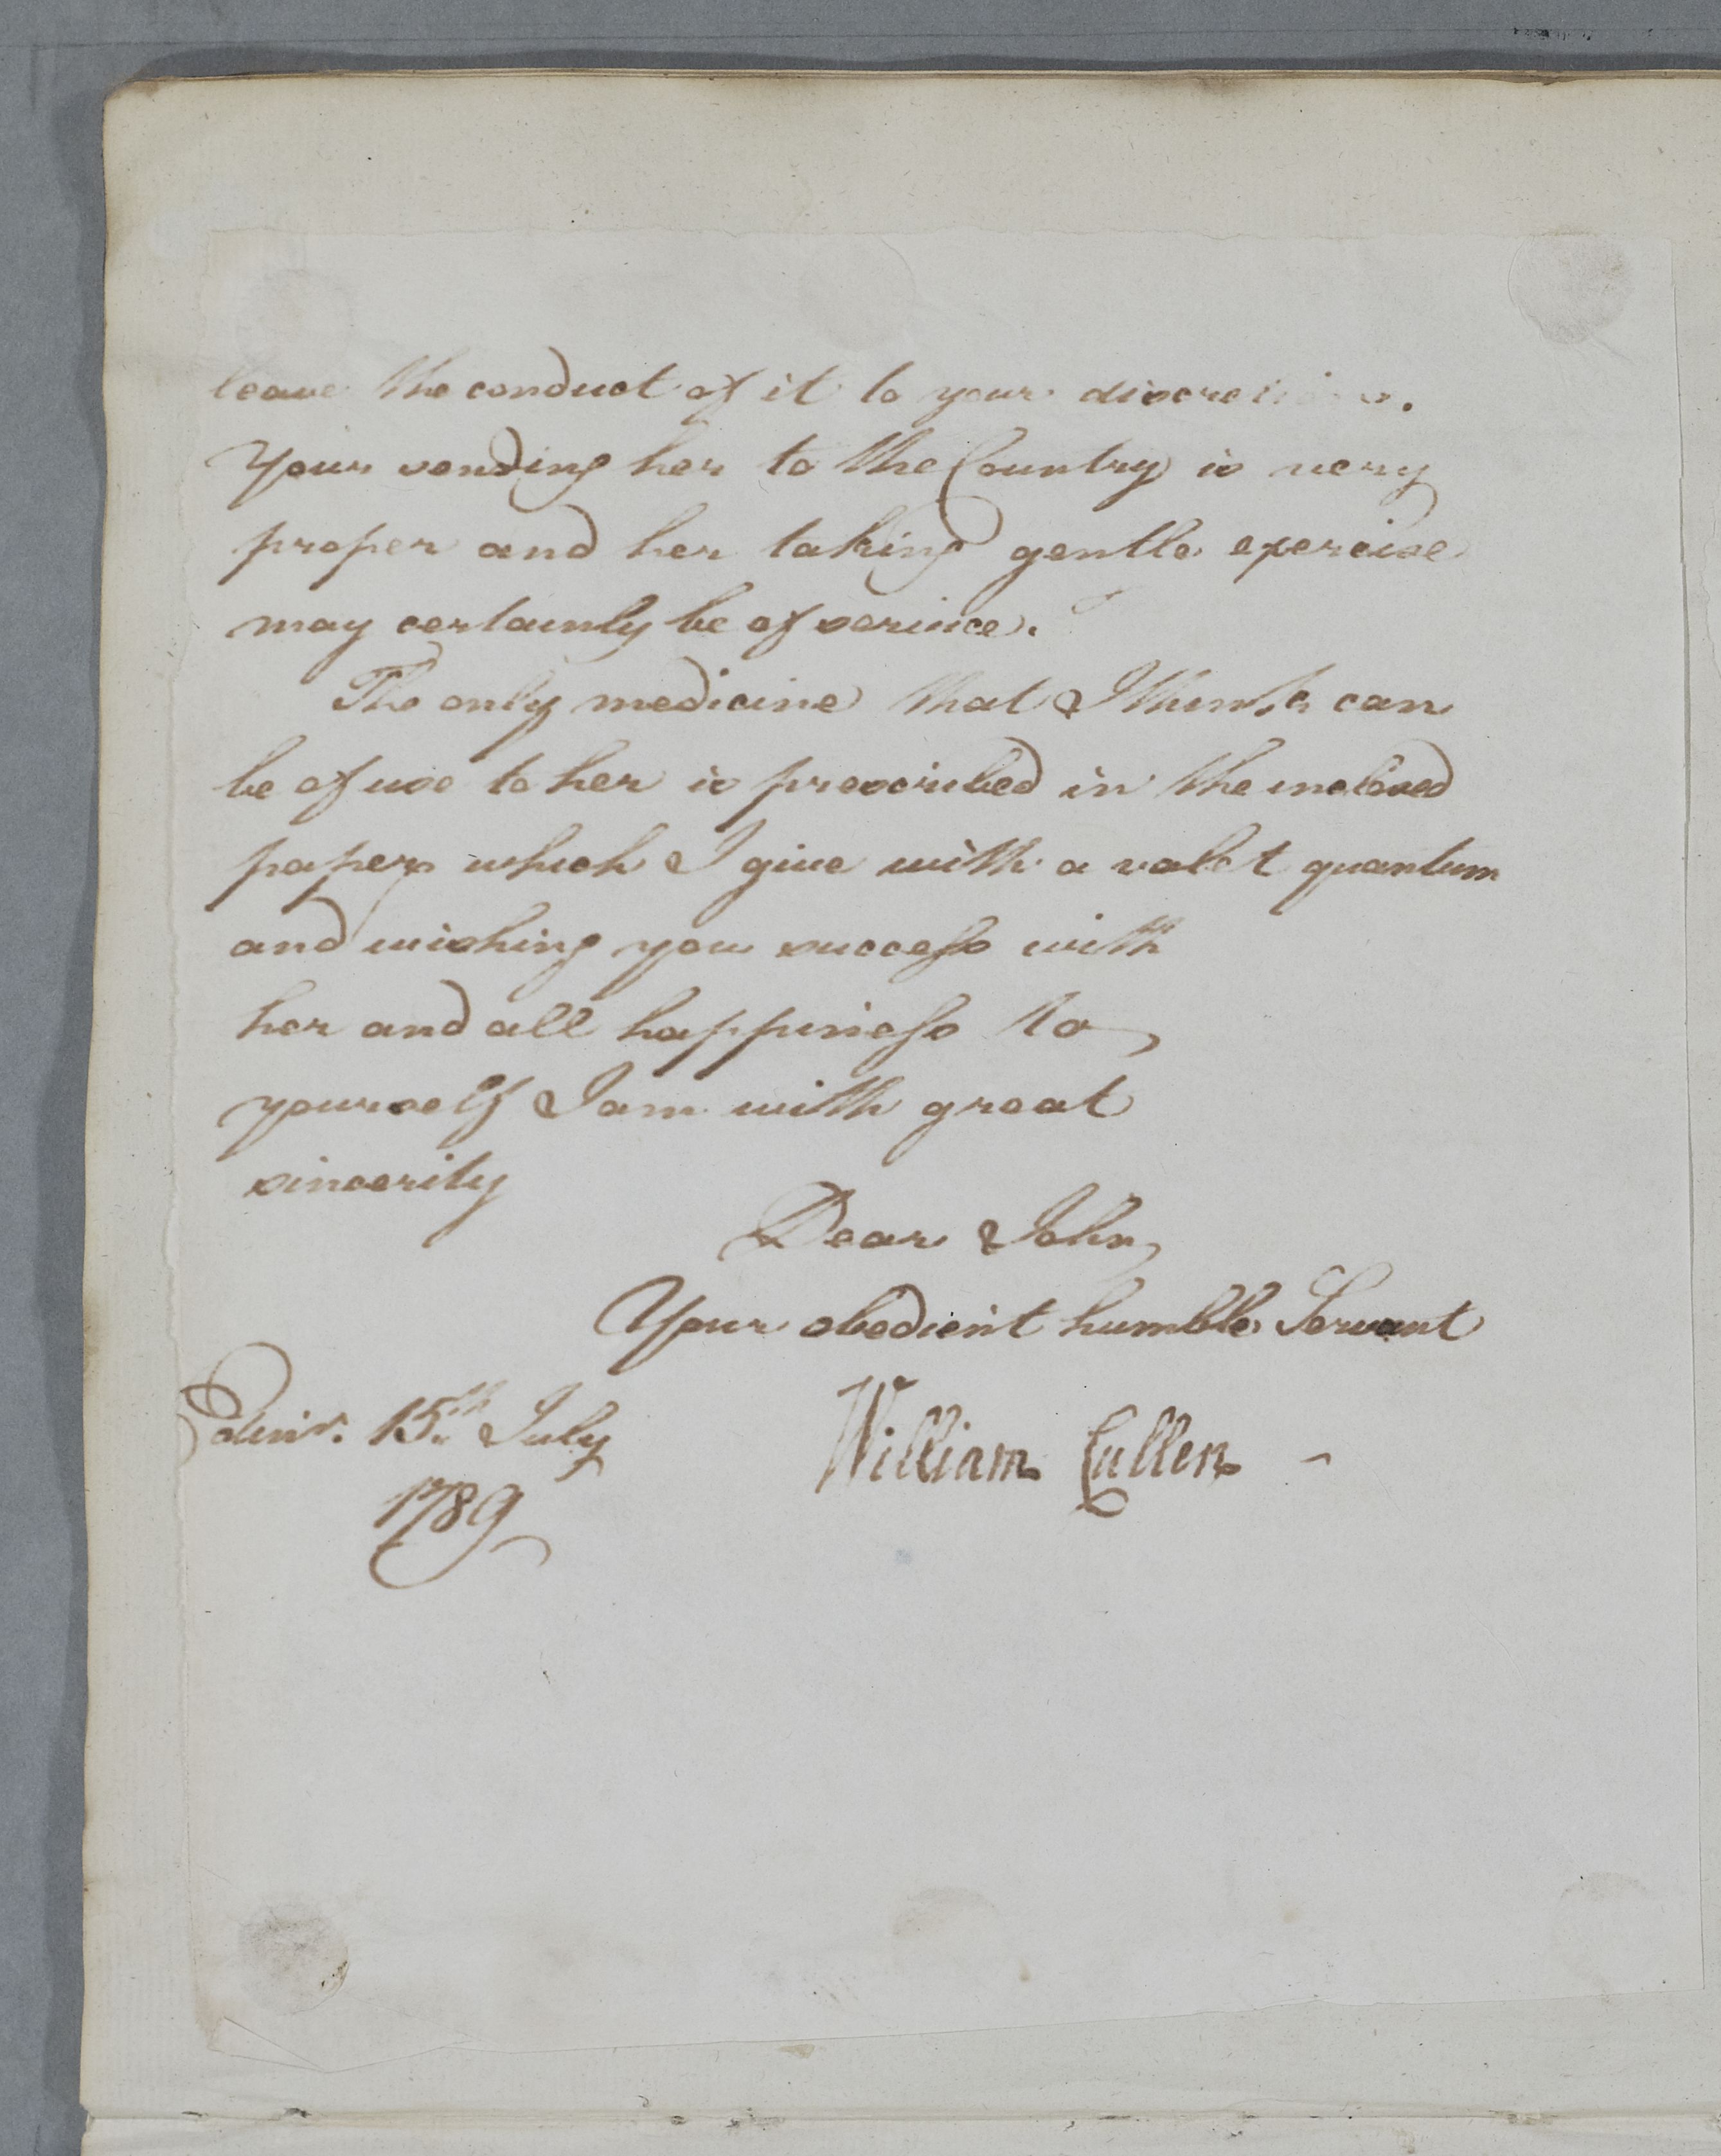 leave the conduct of it to your discretion.
Your sending her to the Country is very
proper and her taking gentle exercise
may certainly be of service.
The only medicine that I think can
be of use to her is prescribed in the inclosed
paper which I give with a valet quantum
and wishing you success with
her and all happiness to
yourself I am with great
sincerity
Dear John
Your obedient humble Servant
Edinr. 15th July
1789
William Cullen